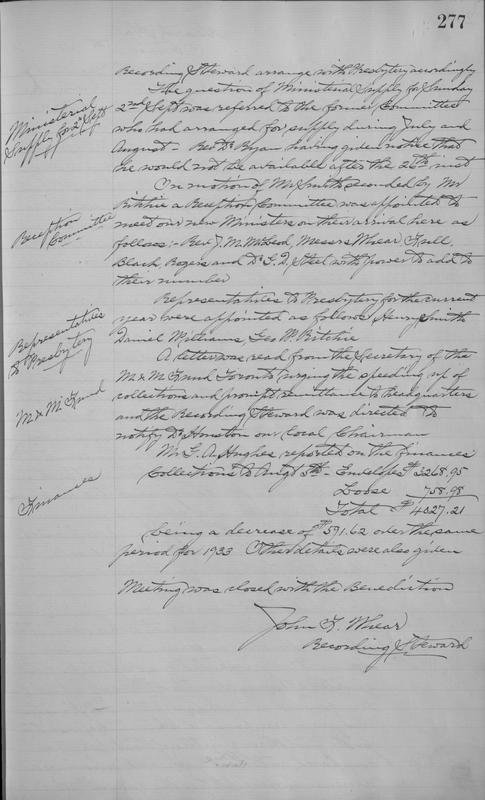 277
Recording Steward arrange with Presbytery accordingly
Ministerial Supply for 2nd Sept
The question of Ministerial Supply for Sunday
2nd Sept was referred to the former Committee
who had arranged for supply during July and
August - Rev Dr Bryan having given notice that
he would not be available after the 26th inst
Reception Committee
On motion of Mr Smith seconded by Mr
Ritchie a Reception Committee was appointed to
meet our new Ministers on their arrival here as
follows :- Rev J. M. McLeod, Messrs Whear, Full,
Black, Rogers and Dr G. D. Steel with power to add to
their number
Representatives to Presbytery
Representatives to Presbytery for the current
year were appointed as follows Henry Smith
Daniel Williams Geo W. Ritchie
M & M Fund
A letter was read from the Secretary of the
M & M Fund Toronto urging the speeding up of
collections and prompt remittance to headquarters
and the Recording Steward was directed to
notify Dr Houston our local Chairman
Finances
Mr G. A. Hughes reported on the finances
Collections to Augt 5th - Envelopes $3268.95
Loose 758.98
Total $4027.21
being a decrease of $591.62 over the same
period for 1933 Other details were also given
Meeting was closed with the Benediction
John F. Whear
Recording Steward